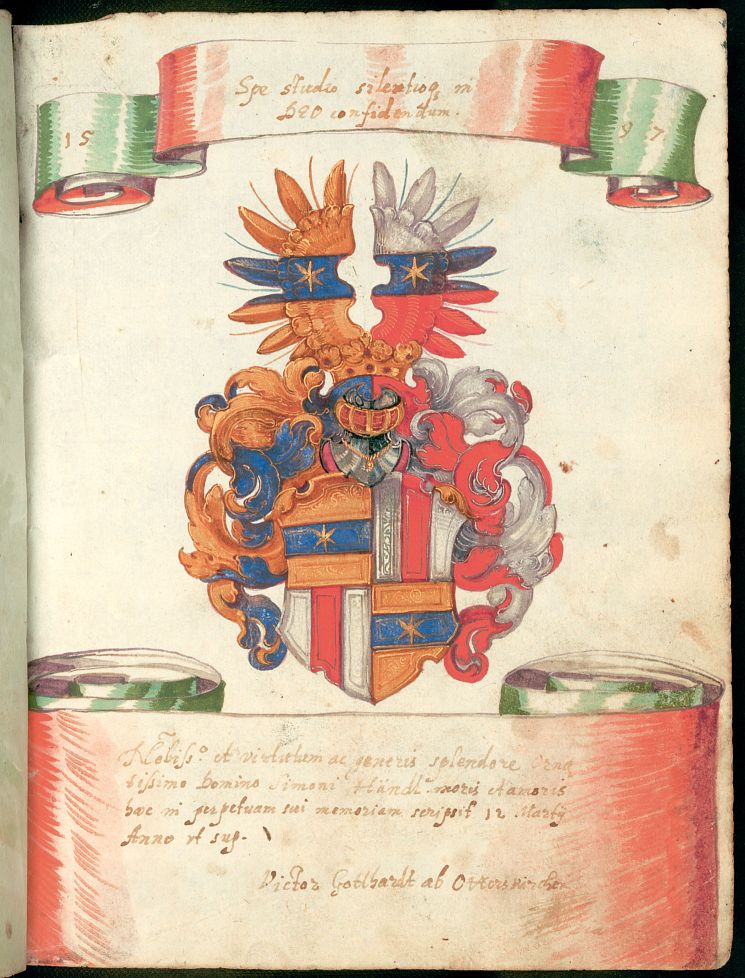 Spe studio silentioq; in
DEO confidendum.
15 97
Nobiss.º et virtutum ac generis splendore Orna
tissimo Domino Simoni Händl moris et amoris
hæc in perpetuam sui memoriam scripsit 12 Martÿ
Anno vt sup.
Victor Gotthardt ab Otterskirchen